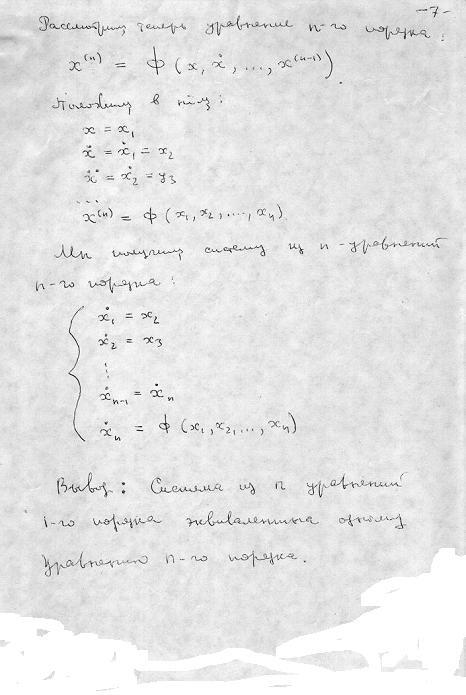 -7-
Рассмотрим теперь уравнение n-го порядка:
x⁽ⁿ⁾ = Φ (x, ẋ, ..., x⁽ⁿ⁻¹⁾).
Положим в нём:
x = x₁
ẋ = ẋ₁ = x₂
ẍ = ẋ₂ = y₃
...
x⁽ⁿ⁾ = Φ (x₁, x₂, ...., xₙ)
Мы получим систему из n-уравнений
n-го порядка:
ẋ₁ = x₂
ẋ₂ = x₃
⋮
ẋₙ₋₁ = ẋₙ
ẋₙ = Φ (x₁, x₂, ..., xₙ)
Вывод: Система из n уравнений
1-го порядка эквивалентна одному
уравнению n-го порядка.